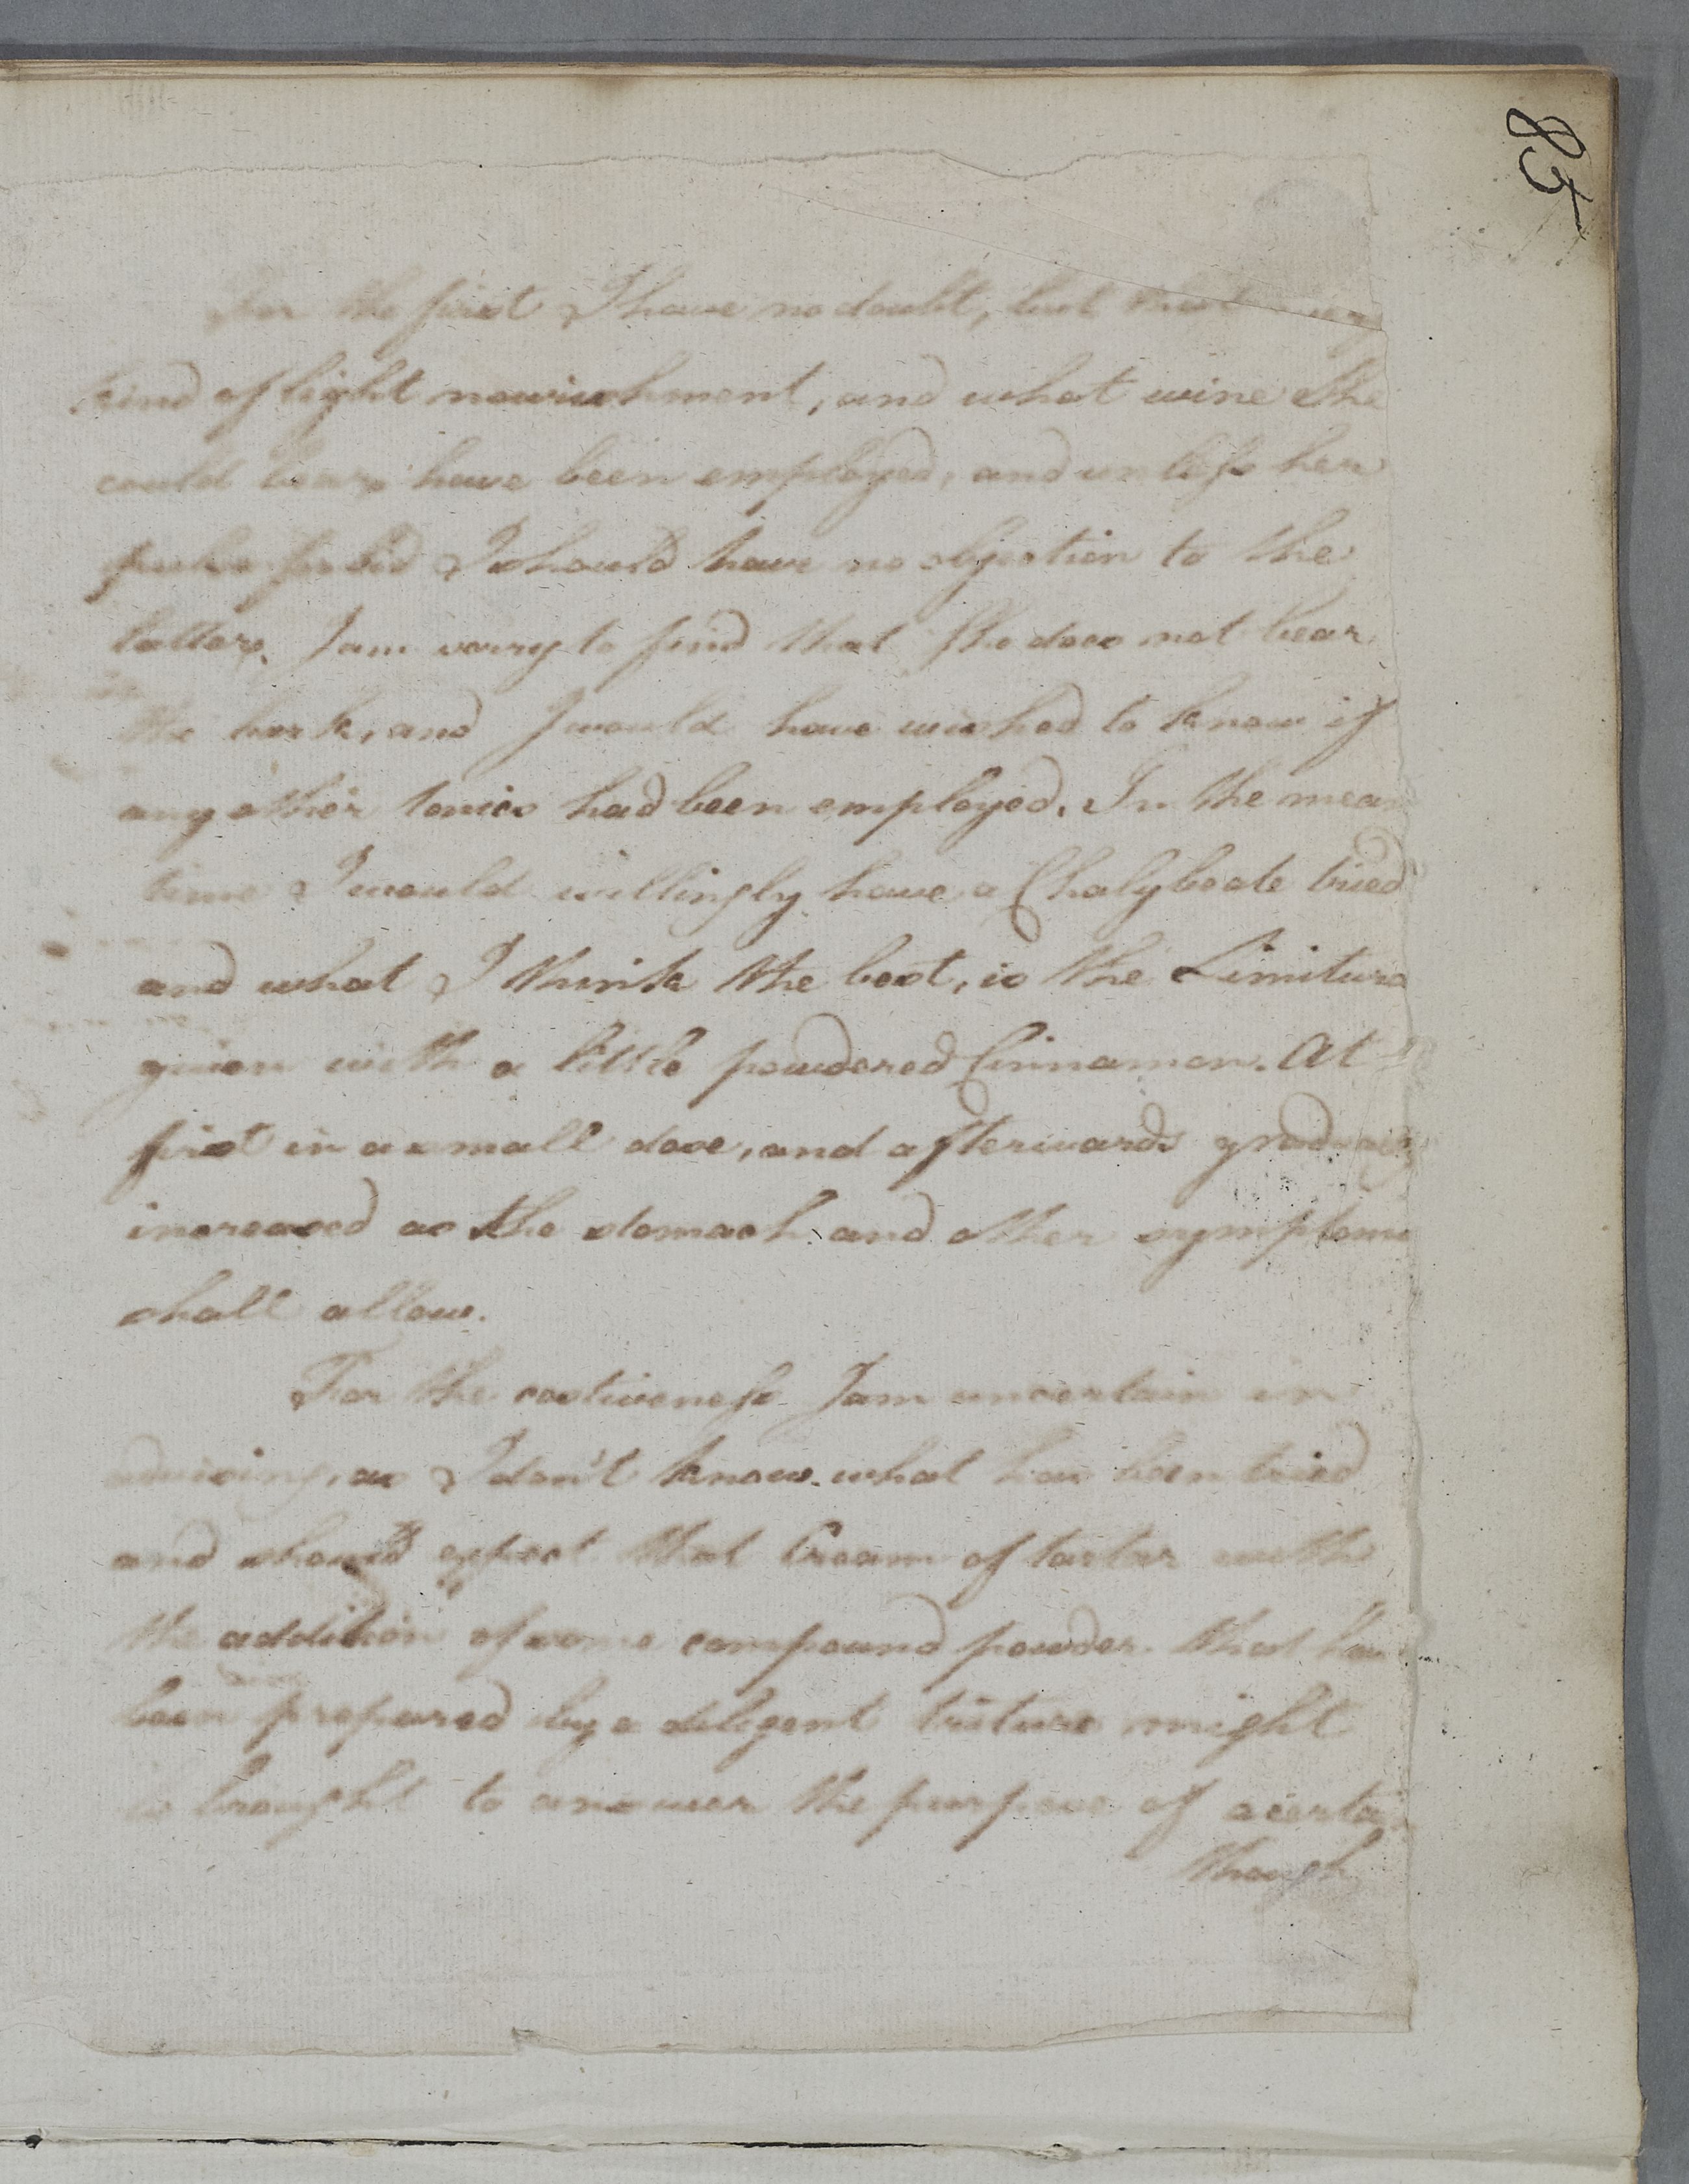 85
For the first I have no doubt, but that
kind of light nowrishment, and what wine She
could bear have been employed, and unless her
pulse forbid I should have no objection to the
latter. I am sorry to find that She does not bear
the bark, and I would have wished to know if
any other tonics had been employed. In the mean
time I would willingly have a Chalybeate tried
and what I think the best, is the Limitura
given with a little powdered Cinnamon. At
first in a small dose, and afterwards gradually
increased as the stomach and other symptoms
shall allow.
For the costiveness I am uncertain in
advising, as I don't know what has been tried
and shou'd expect that Cream of tartar with
the addition of some compound powder that has
been prepared by a diligent triture might
be brought to answer the purpose of a certain
though